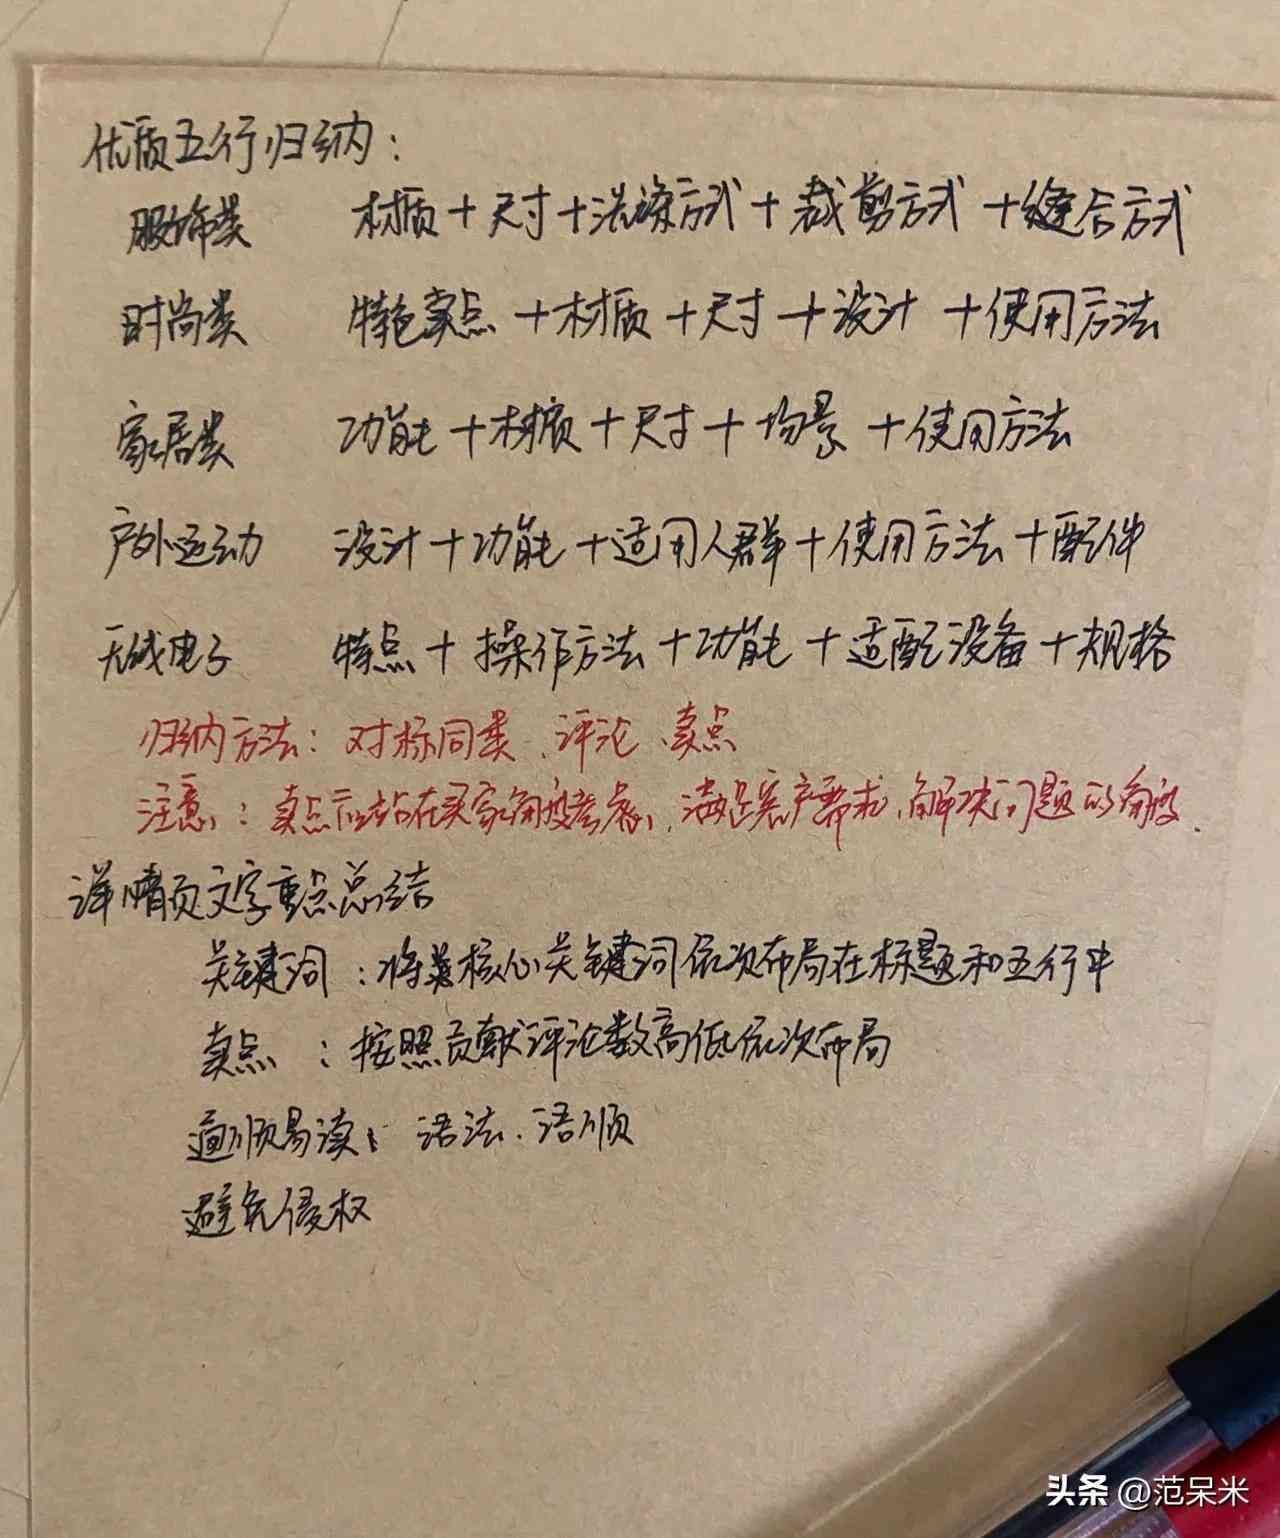 优质五行归纳：
服饰类 材质+尺寸+洗涤方式+裁剪方式+缝合方式
时尚类 特色卖点+材质+尺寸+设计+使用方法
家居类 功能+材质+尺寸+场景+使用方法
户外运动 设计+功能+适用人群+使用方法+配件
无线电子 特点+操作方法+功能+适配设备+规格
归纳方法：对标同类、评论、卖点
注意：卖点应站在买家角度考虑，满足客户需求，解决问题的角度.
详情页文字重点总结
关键词：将核心关键词依次布局在标题和五行中
卖点：按照贡献评论数高低依次布局
通顺易读：语法.语顺
避免侵权
头条 @范呆米